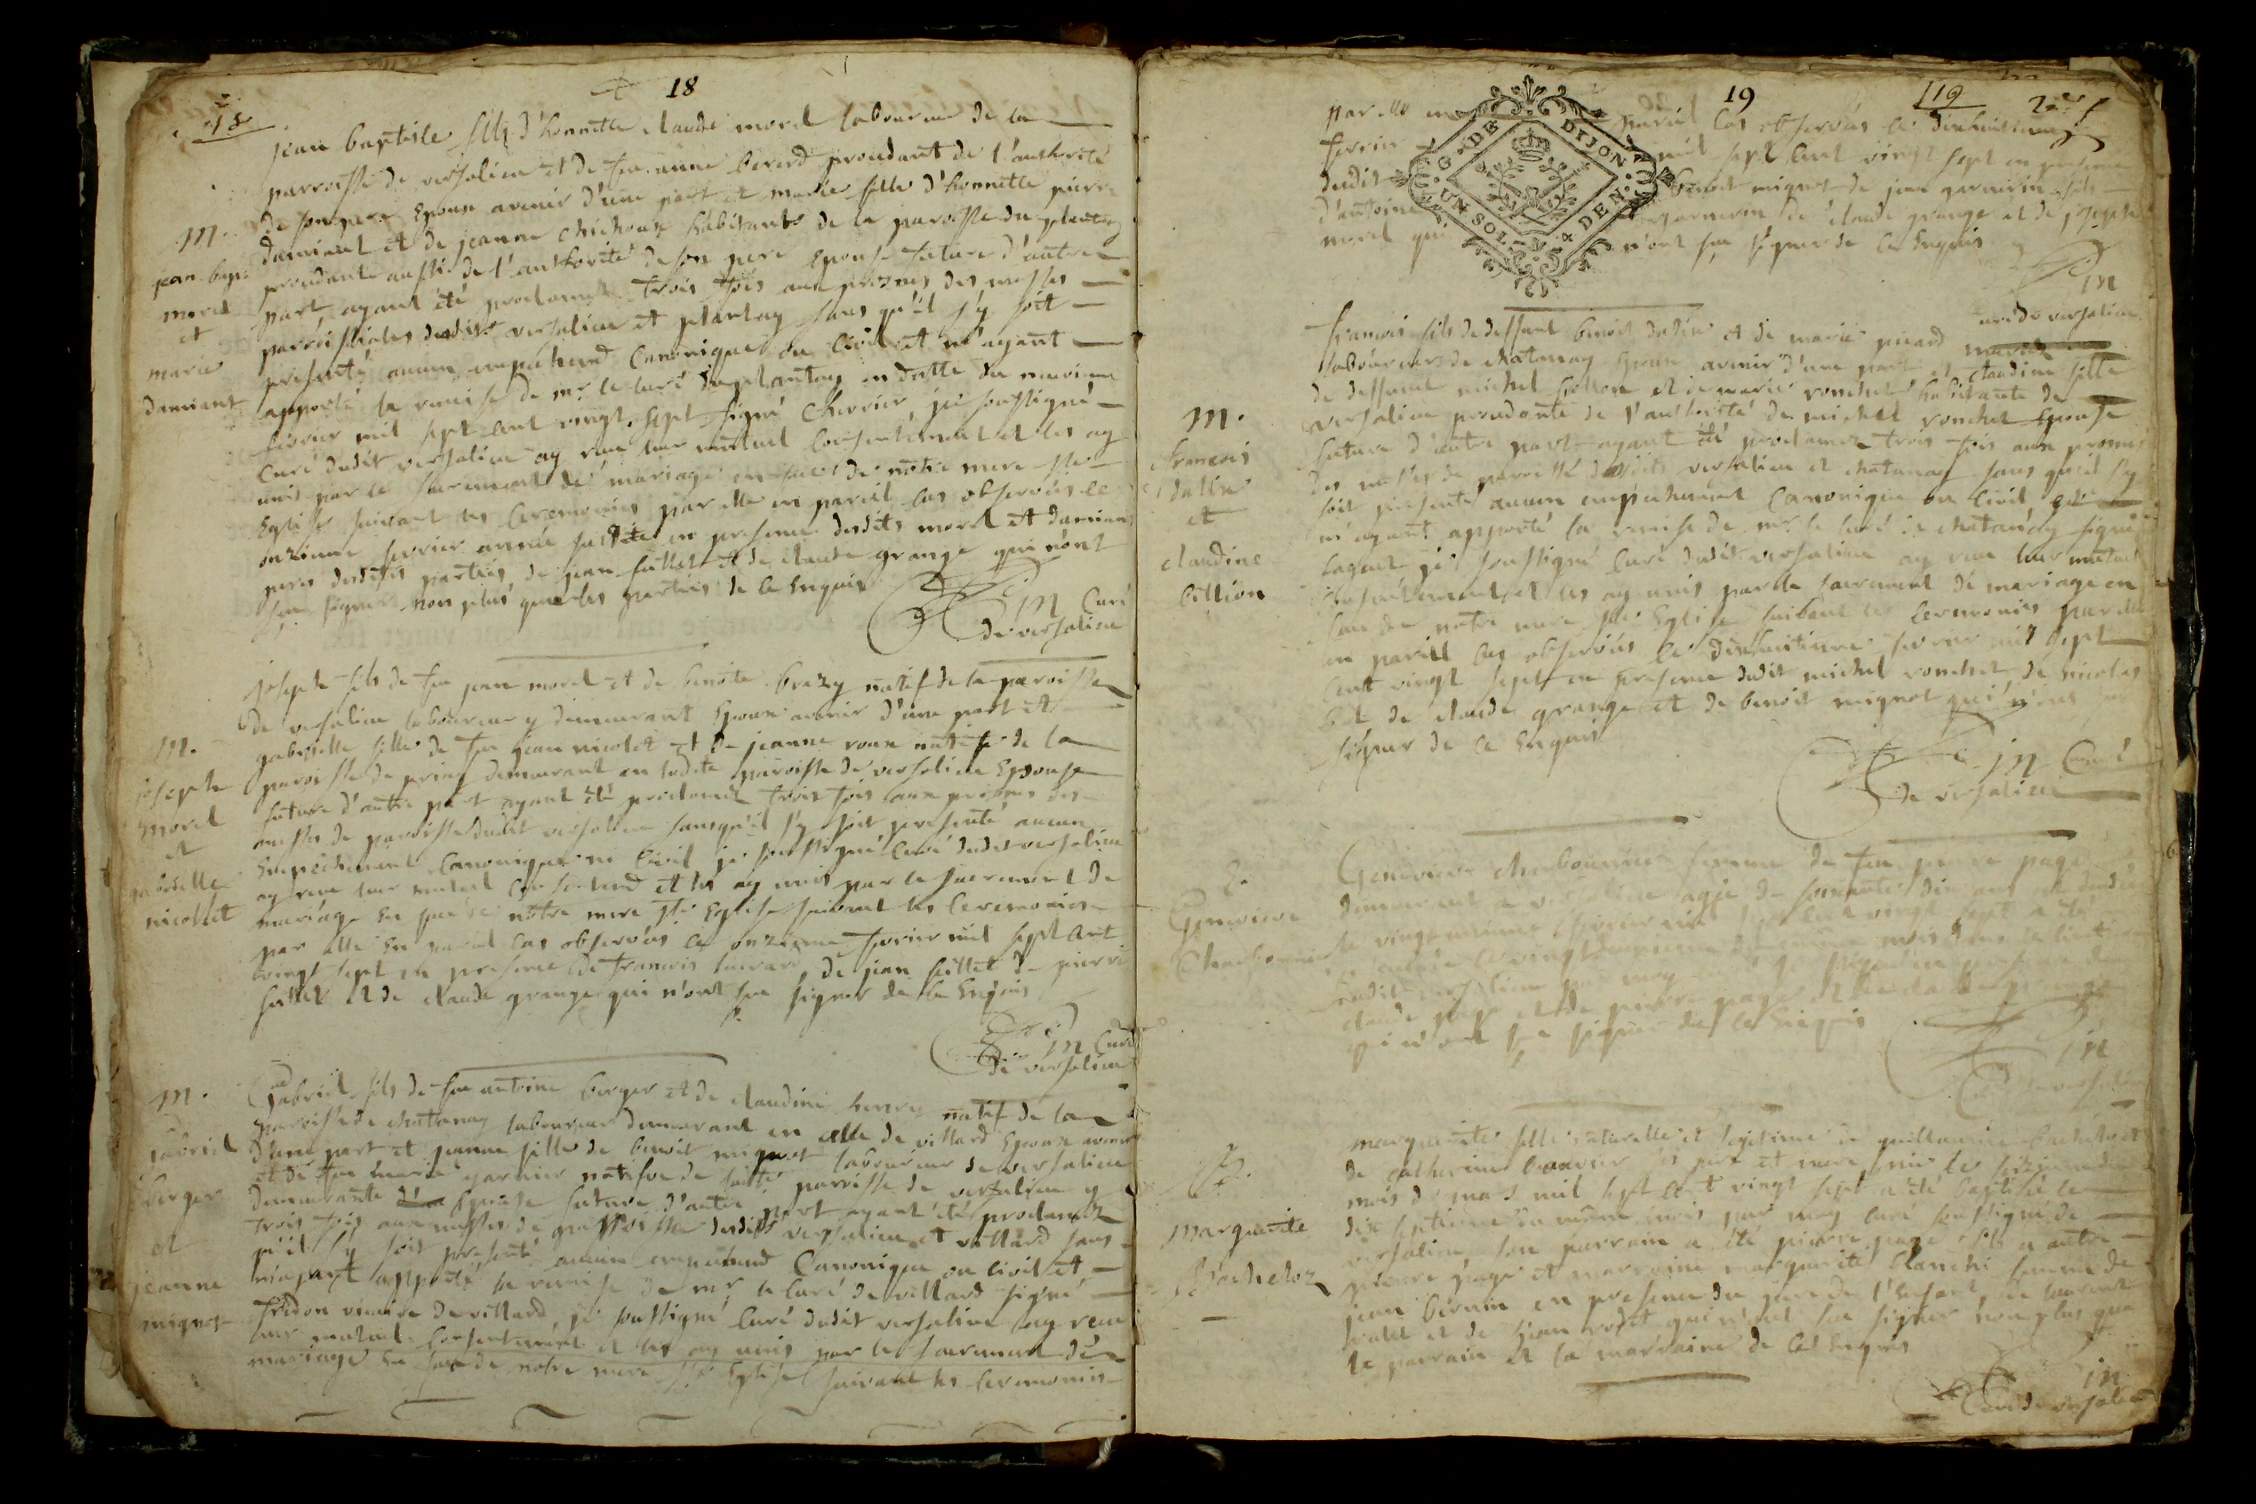 18
18
jean baptiste fils d'honnette claude morel laboureur de la
parroisse de versalieu et de feu anne berard procedant de l'authorité
de son pere Epoux avenir d'une part et marie fille d'honnette pierre
damiant et de jeanne chichoux habitants de la paroisse du plantay
procedante aussi de l'authorité de son pere Epouse future d'autre
part ayant été proclamez trois fois aux prosnes des messes
parroissiales desdits versalieu et plantay sans qu'il s'y soit
presenté aucun empechemt Canonique ou Civil et m'ayant
apporté la remise de mr le curé du plantay en datte du neuvieme
fevrier mil sept cent vingt sept signé Cherrier, je soussigné
Curé dudit versalieu ay reçu leur mutuel consentement et les ay
unis par le sacrement de mariage en face de notre mere ste
Eglise suivant les Ceremonies par elle en pareil cas observées le
onzieme fevrier année susdite en presence desdits morel et damiant
peres desdittes parties, de jean fillet et de claude grange qui n'ont
sçu signer non plus que les parties de ce Enquis
in Curé
de versalieu
M.
jean bapt.
morel
et
marie
damiant
joseph fils de feu jean morel et de benoite brazy natif de la paroisse
de versalieu laboureur y demeurant Epoux avenir d'une part et
gabrielle fille de feu jean nicolet et de jeanne roux native de la
paroisse de priay demeurant en ladite paroisse de versalieu Epouse
future d'autre part ayant été proclamez trois fois aux prosnes des
messes de paroisse dudit versalieu sans qu'il s'y soit presenté aucun
Empechement Canonique ni Civil je soussigné Curé dudit versalieu
ay reçu leur mutuel consentemt et les ay unis par le sacrement de
mariage En face de notre mere ste Eglise suivant les Ceremonies
par elle En pareil cas observées le onzieme fevrier mil sept cent
vingt sept en presence de francois de jean fillet de pierre
fillet et de claude grange qui n'ont sçu signer de ce Enquis
in Curé
de versalieu
M.
joseph
morel
et
gabrielle
nicollet
Gabriel fils de feu antoine berger et de claudine henry natif de la
paroisse de chatenay laboureur demeurant en celle de villard Epoux avenir
d'une part et jeanne fille de benoit mignot laboureur de versalieu
et de feu marie garnier native de ladite parroisse de versalieu y
demeurante Epouse future d'autre part ayant été proclamez
trois fois aux messes de paroisse desdits versalieu et villard sans
qu'il s'y soit presenté aucun empechemt Canonique ou civil et
m'ayant apporté la remise de mr le Curé de villard signé
vicaire de villard, je soussigné Curé dudit versalieu ay reçu
leur mutuel consentement et les ay unis par le sacrement de
mariage En face de notre mere ste Eglise suivant les Ceremonies
M.
gabriel
berger
et
jeanne
mignot
19
119
par elle en pareil cas observées le dixhuitieme
fevrier mil sept cent vingt sept en presence
dudit benoit mignot de jean garnerin fils
d'antoine garnerin de claude grange et de joseph
morel qui n'ont sçu signer de ce Enquis
G. DE DIJON
UN SOL 4 DEN.
in
curé de versalieu
francois fils de deffunt benoit dalin et de marie
laboureur de chatenay Epoux avenir d'une part et claudine fille
de deffunt michel billion et de marie ronchet habitante de
versalieu procedante de l'authorité de michel ronchet Epouse
future d'autre part ayant été proclamez trois fois aux prosnes
des messes de parroisse desdits versalieu et chatenay sans qu'il s'y
soit presenté aucun empechement Canonique ou Civil et
m'ayant apporté la remise de mr le curé de chatenay signé
je soussigné Curé dudit versalieu ay reçu leur mutuel
consentement et les ay unis par le sacrement de mariage en
face de notre mere ste Eglise suivant les Ceremonies par elle
en pareil cas observées le dixhuitieme fevrier mil sept
cent vingt sept en presence dudit michel ronchet de nicolas
de claude grange et de benoit mignot qui n'ont sçu
signer de ce Enquis
in Curé
de versalieu
M.
francois
dalin
et
claudine
billion
Genevieve charbonnier femme de feu pierre page
demeurant a versalieu agée de soixante dix ans
le vingt fevrier mil sept cent vingt sept a été
mois
dudit versalieu par moy en presence de
claude page et de pierre page et de claude grange
qui n'ont sçu signer de ce Enquis
in
de versalieu
Genevieve
Charbonnier
marguerite fille naturelle et legitime de guillaume bacheloz et
de catherine ses pere et mere née le seizieme du
mois de mars mil sept cent vingt sept a été baptisée le
dix septieme du même mois par moy curé soussigné de
versalieu son parrain a été pierre page fils a autre
pierre page et marraine marguerite blanchi femme de
jean bernin en presence du pere de l'enfant, de laurent
et de jean qui n'ont sçu signer non plus que
le parrain et la marraine de ce Enquis
in
Curé de versalieu
B.
marguerite
Bacheloz